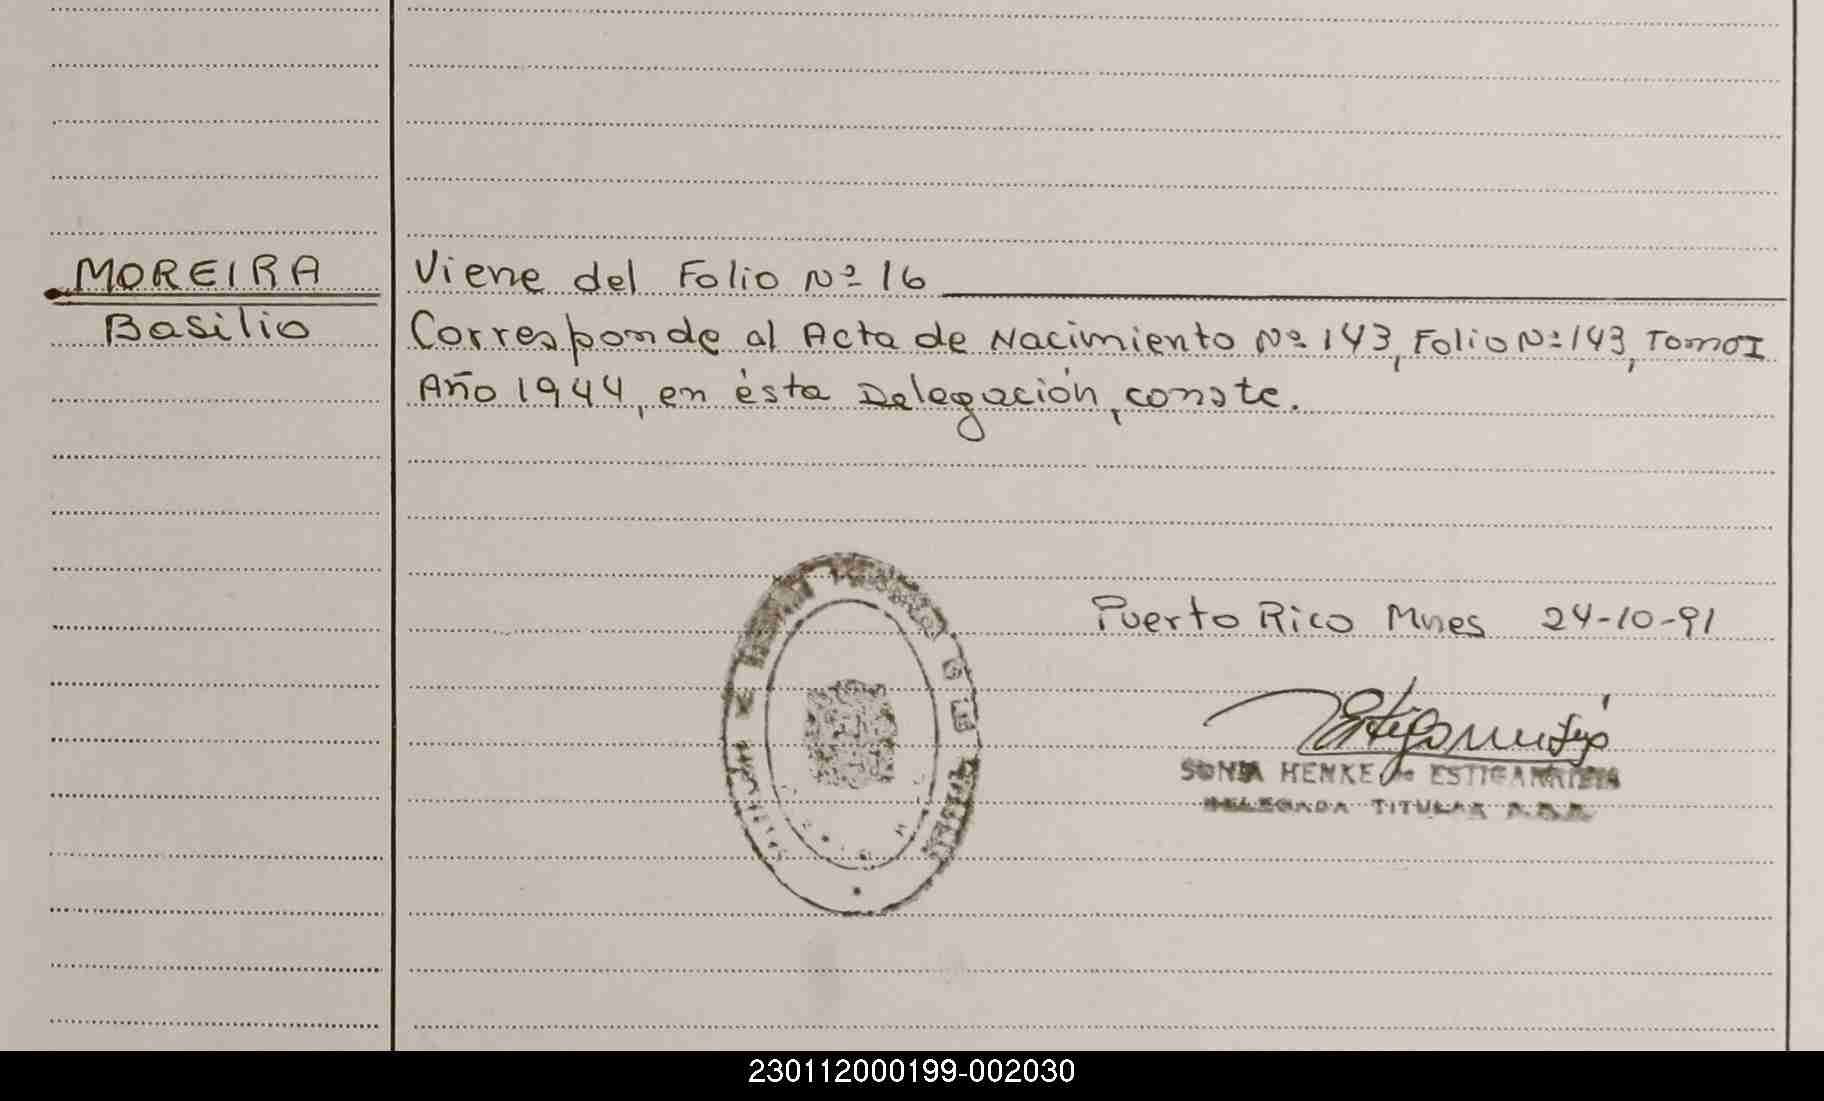 MOREIRA
Basilio
Viene del Folio Nº 16
Corresponde al Acta de Nacimiento Nº 143, Folio Nº 143, Tomo I
Año 1944, en ésta Delegación, conste.
Puerto Rico Mnes 24-10-91
SONIA HENKE de ESTIGARRIBIA
DELEGADA TITULAR
230112000199-002030